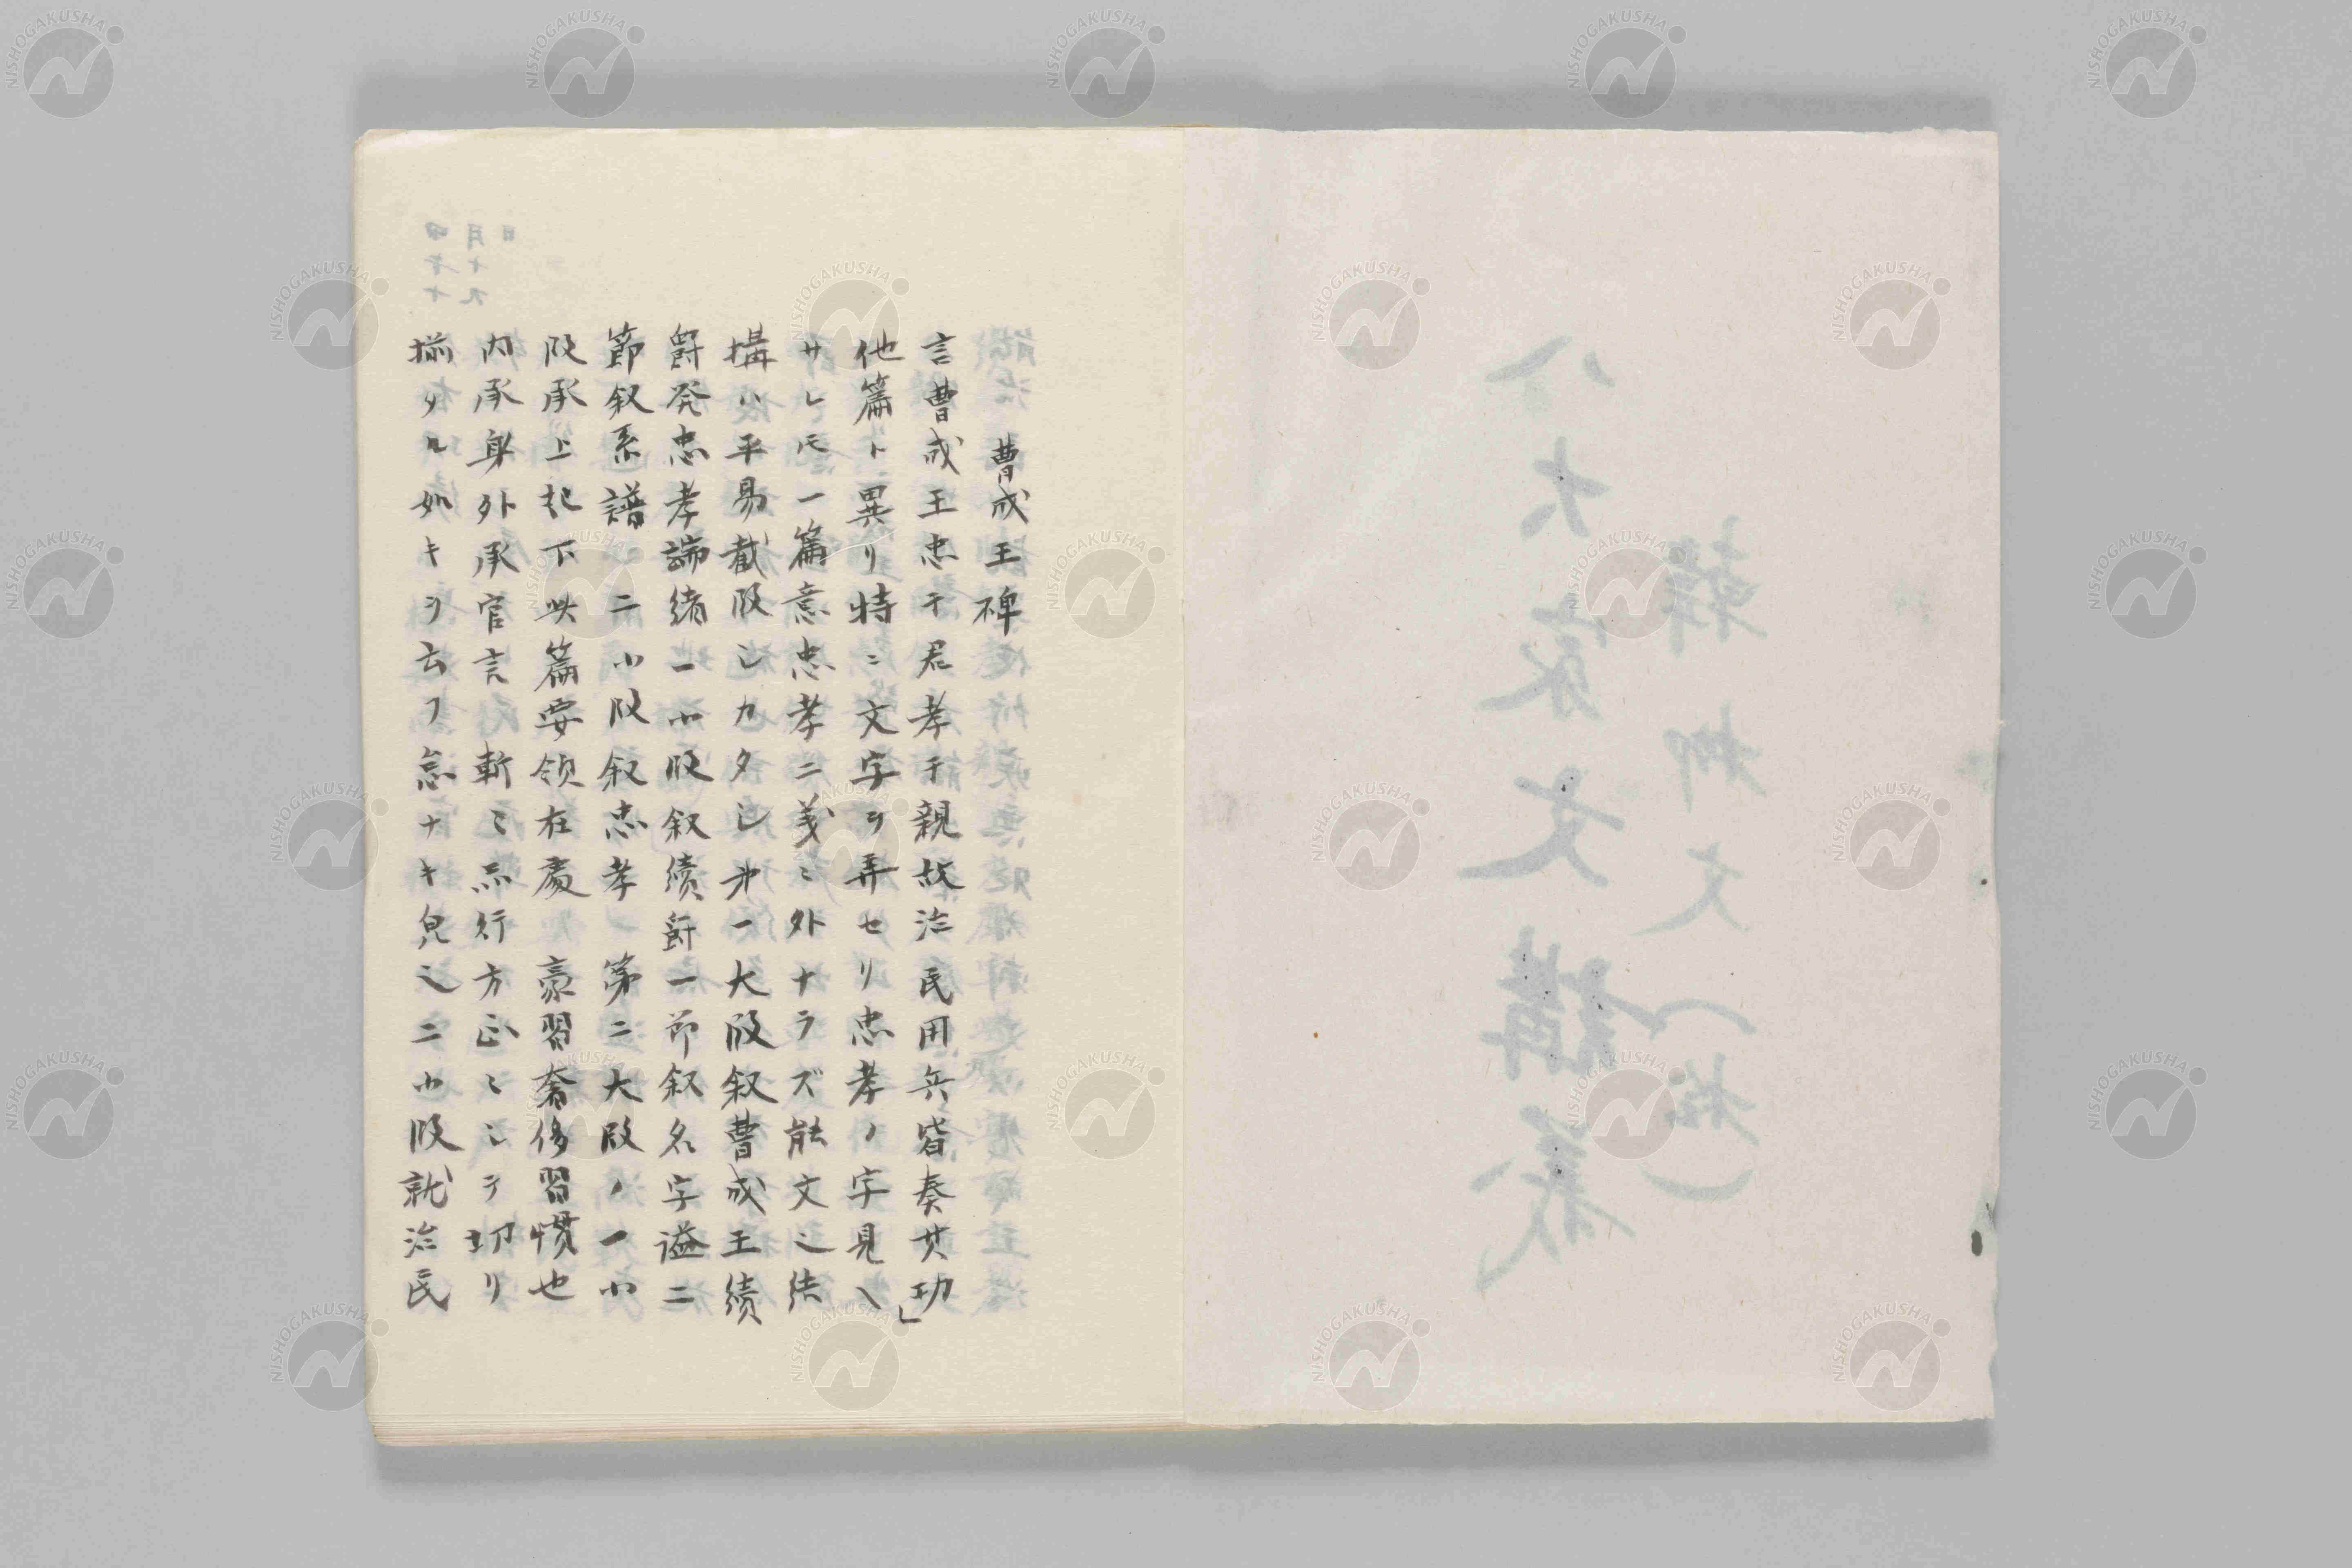 曹成王碑
言曹成王忠于君孝于親故治民用兵皆奏其功」
他篇ト異リ特ニ文字ヲ弄セリ忠孝ノ字見ヘ
サレ𪜈一篇意忠孝二義ニ外ナラズ能文之結
搆ハ平易截段シカタシ第一大段叙曹成王績
爵発忠孝端緒一小段叙績爵一節叙名字謚二
節叙系譜 二小段叙忠孝 第二大段ノ一小
段承上起下此篇要領在處 豪習奢侈習慣也
内承身外承官言 斬ミ亦行方正ミシテ切リ
揃タル如キヲ云フ怠ナキ皃之二小段就治民
八大家文講義
韓柳文(松)
NISHOGAKUSHA